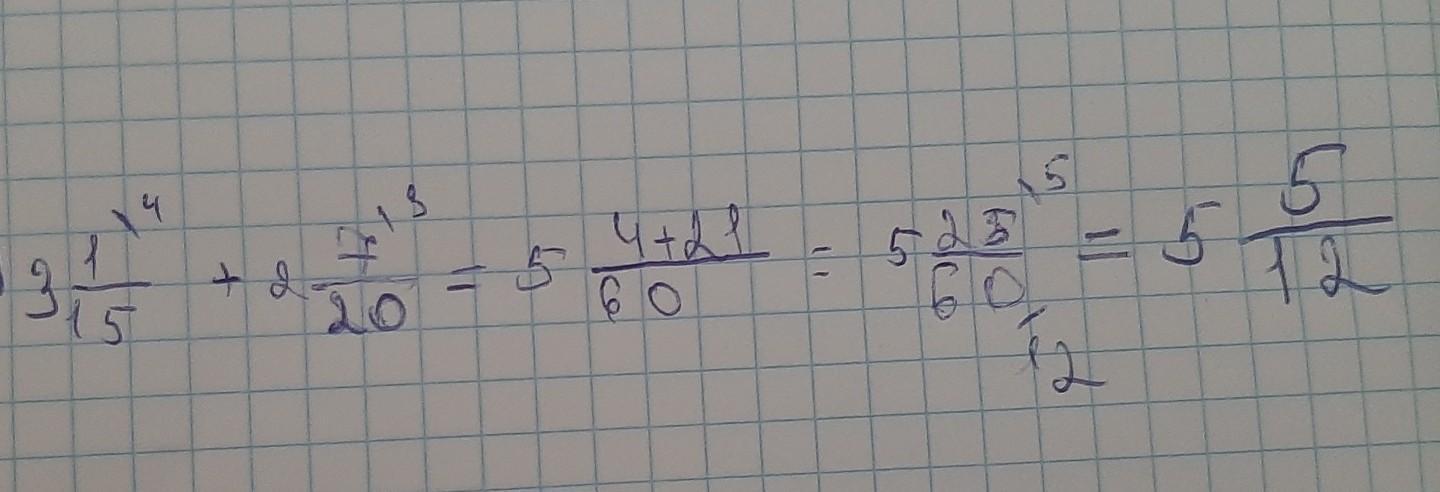 3 1/15 \4 + 2 7/20 \3 = 5 (4+21)/60 = 5 25/60 \5 /12 = 5 5/12